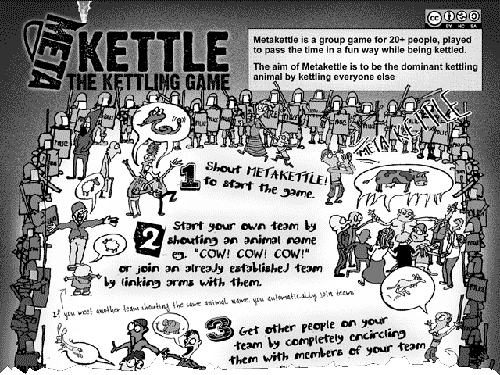 META
KETTLE
THE KETTLING GAME
BY NC SA
Metakettle is a group game for 20+ people, played
to pass the time in a fun way while being kettled.
The aim of Metakettle is to be the dominant kettling
animal by kettling everyone else
METAKETTLE!
1 Shout METAKETTLE!
to start the game.
2 Start your own team by
shouting an animal name
eg. "COW! COW! COW!"
or join an already established team
by linking arms with them.
If you meet another team shouting the same animal name, you automatically join teams
3 Get other people on your
team by completely encircling
them with members of your team